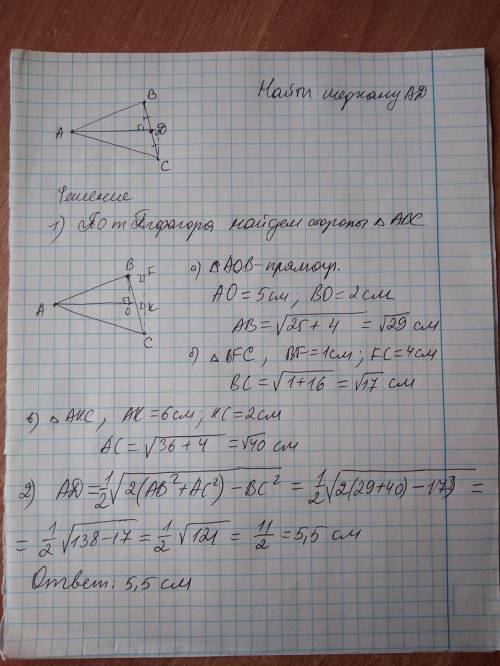 Найти медиану AD
B
A
D
C
Решение
1) По т Пифагора найдем стороны △ ABC
B F
A
O K
C
a) △AOB-прямоуг.
AO=5см; BO=2см
AB=√25+4 =√29 см
б) △BFC, BF=1см; FC=4см
BC=√1+16 =√17 см
в) △AKC, AK=6см; KC=2см
AC=√36+4 =√40 см
2) AD=1/2√2(AB²+AC²)-BC² = 1/2√2(29+40)-17 =
= 1/2√138-17 = 1/2√121 = 11/2 = 5,5 см
Ответ: 5,5 см